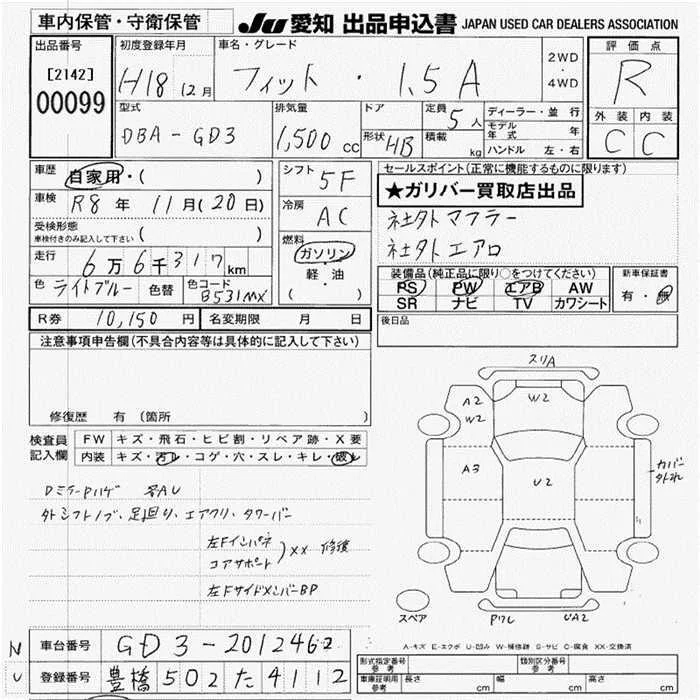 車内保管・守衛保管
JU 愛知 出品申込書 JAPAN USED CAR DEALERS ASSOCIATION
出品番号
[2142]
00099
初度登録年月
H18 12月
車名・グレード
フィット ・ 1.5A
2WD
・
4WD
評価点
R
外装 内装
C C
型式
DBA-GD3
排気量
1,500 cc
ドア
形状 HB
定員 5人
積載 kg
ディーラー・並行
モデル年式 年
ハンドル 左・右
車歴 自家用・( )
車検 R8年 11月(20日)
受検形態
車検付きのみ記入して下さい ( )
走行 6万6千317km
色 ライトブルー 色替 色コード B531MX
シフト 5F
冷房 AC
燃料
ガソリン
軽・油
( )
セールスポイント(正常に機能するものに限ります)
★ガリバー買取店出品
社外マフラー
社外エアロ
装備品(純正品に限り○をつけてください)
PS PW エアB AW
SR ナビ TV カワシート
新車保証書
有・無
後日品
R券 10,150円 名変期限 月 日
注意事項申告欄(不具合内容等は具体的に記入して下さい)
修復歴 有 (箇所
検査員記入欄
FW キズ・飛石・ヒビ割・リペア跡・X要
内装 キズ・汚レ・コゲ・穴・スレ・キレ・破レ
Dミラーハゲ 各AU
外シフトノブ、足廻り、エアクリ、タワーバー
左Fインパネ
コアサポート
) XX 修後
左FサイドメンバーBP
スリA
W2
A2
W2
A3
U2
カバー外れ
スペア
Pワレ
UA2
A-キズ E-エクボ U-凹み W-補修跡 S-サビ C-腐食 XX-交換済
NU
車台番号 GD3-2012462
登録番号 豊橋 502 た 4112
形式指定番号 参考
類別区分番号 参考
車庫証明用 参考 長さ cm 幅 cm 高さ cm